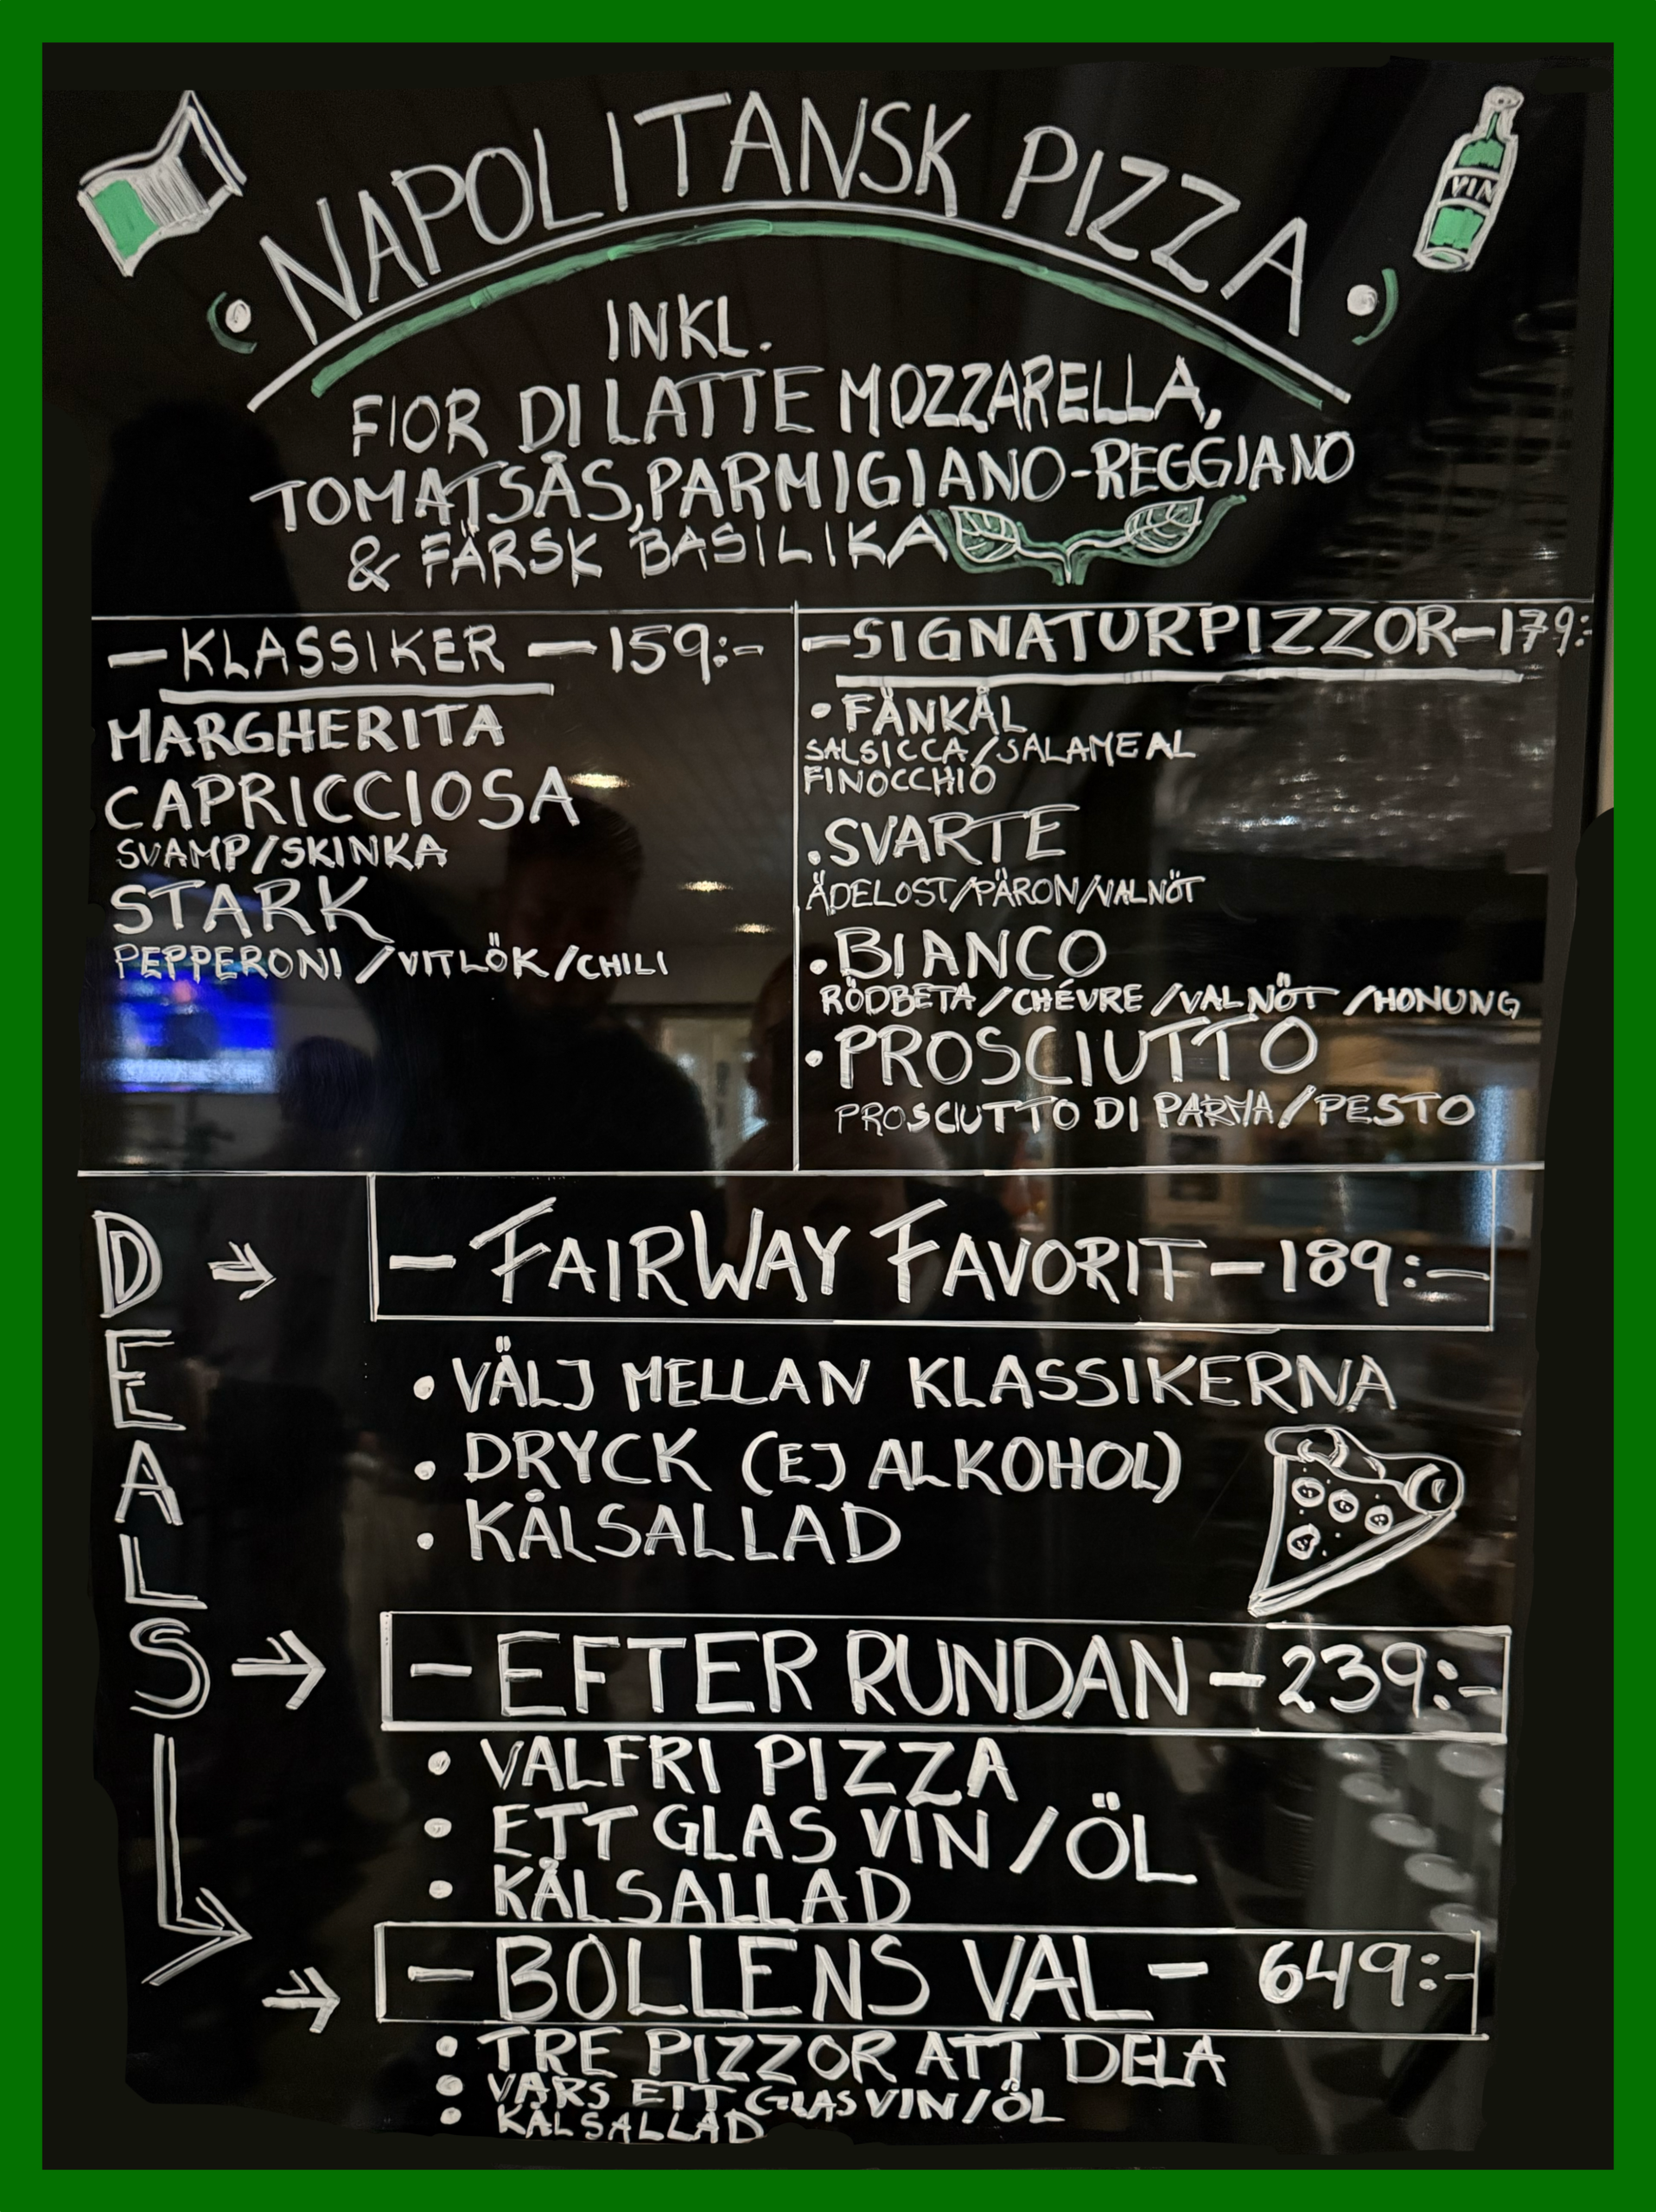 VIN
NAPOLITANSK PIZZA
INKL.
FIOR DI LATTE MOZZARELLA,
TOMATSÅS, PARMIGIANO-REGGIANO
& FÄRSK BASILIKA
— KLASSIKER — 159:-
MARGHERITA
CAPRICCIOSA
SVAMP/SKINKA
STARK
PEPPERONI /VITLÖK/CHILI
—SIGNATURPIZZOR—179:-
• FÄNKÅL
SALSICCA/SALAME AL
FINOCCHIO
• SVARTE
ÄDELOST/PÄRON/VALNÖT
• BIANCO
RÖDBETA/CHÉVRE/VALNÖT/HONUNG
• PROSCIUTTO
PROSCIUTTO DI PARMA/PESTO
DEALS
— FAIRWAY FAVORIT — 189:-
• VÄLJ MELLAN KLASSIKERNA
• DRYCK (EJ ALKOHOL)
• KÅLSALLAD
— EFTER RUNDAN — 239:-
• VALFRI PIZZA
• ETT GLAS VIN/ÖL
• KÅLSALLAD
— BOLLENS VAL — 649:-
• TRE PIZZOR ATT DELA
• VARS ETT GLAS VIN/ÖL
• KÅLSALLAD